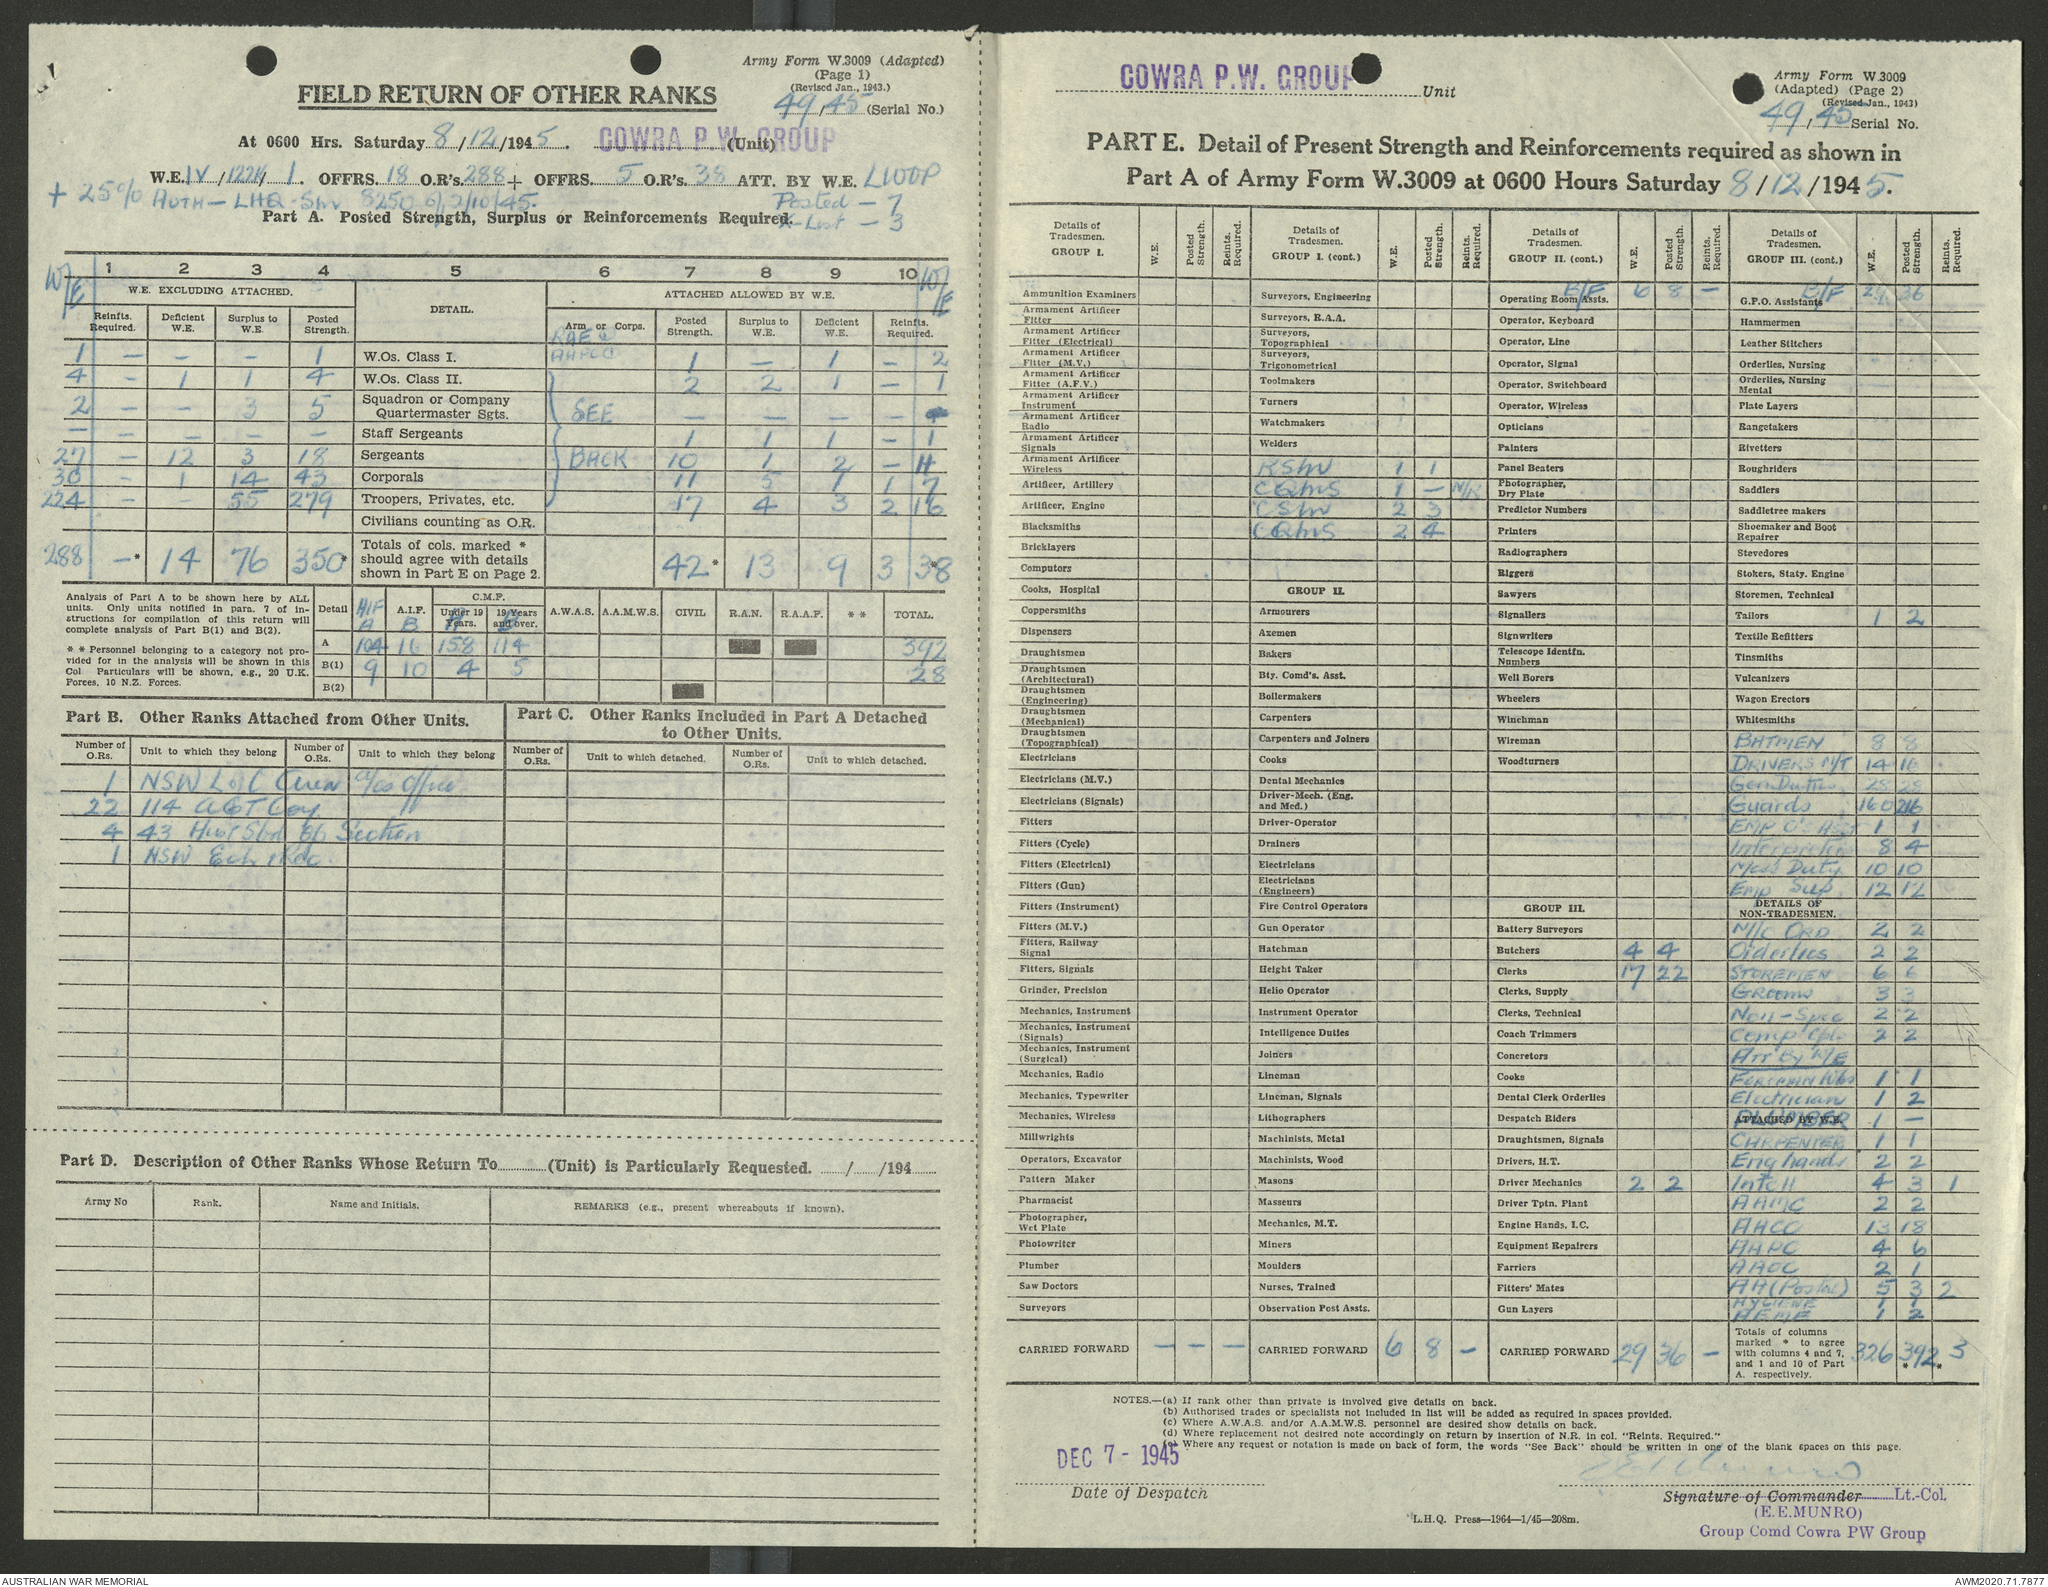 Army Form W.3009 (Adapted)
(Page 1)
(Revised Jan., 1943.)
49/45 (Serial No.)
FIELD RETURN OF OTHER RANKS
At 0600 Hrs. Saturday 8/12/1945. COWRA P.W. GROUP (Unit)
W.E. IV/122K/1. OFFRS. 18 O.R's. 288 + OFFRS. 5 O.R's. 38 ATT. BY W.E. L100P
+ 25% AUTH - LHQ
Posted - 7
X-List - 3
Part A. Posted Strength, Surplus or Reinforcements Required.
W/E 1 2 3 4 5 6 7 8 9 10 W/E
W.E. EXCLUDING ATTACHED. DETAIL. ATTACHED ALLOWED BY W.E.
Reinfts. Required. Deficient W.E. Surplus to W.E. Posted Strength. Arm or Corps. Posted Strength. Surplus to W.E. Deficient W.E. Reinfts. Required.
1 — — — 1 W.Os. Class I. 1 — 1 — 2
4 — 1 1 4 W.Os. Class II. 2 2 1 — 1
2 — — 3 5 Squadron or Company Quartermaster Sgts. SEE — — — —
— — — — — Staff Sergeants 1 1 1 — 1
27 — 12 3 18 Sergeants BACK 10 1 2 — 11
30 — 1 14 43 Corporals 11 5 1 1 7
224 — — 55 279 Troopers, Privates, etc. 17 4 3 2 16
Civilians counting as O.R.
288 —* 14 76 350* Totals of cols. marked * should agree with details shown in Part E on Page 2. 42* 13 9 3 38
Analysis of Part A to be shown here by ALL units. Only units notified in para. 7 of instructions for compilation of this return will complete analysis of Part B(1) and B(2).
* * Personnel belonging to a category not provided for in the analysis will be shown in this Col Particulars will be shown, e.g., 20 U.K. Forces, 10 N.Z. Forces.
Detail AIF A A.I.F. B C.M.F. Under 19 Years. 19 Years and over. A.W.A.S. A.A.M.W.S. CIVIL R.A.N. R.A.A.F. * * TOTAL.
A 104 16 158 114 392
B(1) 9 10 4 5 28
B(2)
Part B. Other Ranks Attached from Other Units.
Part C. Other Ranks Included in Part A Detached to Other Units.
Number of O.Rs. Unit to which they belong Number of O.Rs. Unit to which they belong Number of O.Rs. Unit to which detached. Number of O.Rs. Unit to which detached.
1 NSW L of C
22 114 AGT Coy
4 43 Section
1 NSW
Part D. Description of Other Ranks Whose Return To (Unit) is Particularly Requested. / /194
Army No Rank. Name and Initials. REMARKS (e.g., present whereabouts if known).
COWRA P.W. GROUP Unit
Army Form W.3009
(Adapted) (Page 2)
(Revised Jan., 1943)
49/45 Serial No.
PART E. Detail of Present Strength and Reinforcements required as shown in
Part A of Army Form W.3009 at 0600 Hours Saturday 8/12/1945.
Details of Tradesmen. GROUP I. W.E. Posted Strength. Reints. Required.
Ammunition Examiners
Armament Artificer Fitter
Armament Artificer Fitter (Electrical)
Armament Artificer Fitter (M.V.)
Armament Artificer Fitter (A.F.V.)
Armament Artificer Instrument
Armament Artificer Radio
Armament Artificer Signals
Armament Artificer Wireless
Artificer, Artillery
Artificer, Engine
Blacksmiths
Bricklayers
Computors
Cooks, Hospital
Coppersmiths
Dispensers
Draughtsmen
Draughtsmen (Architectural)
Draughtsmen (Engineering)
Draughtsmen (Mechanical)
Draughtsmen (Topographical)
Electricians
Electricians (M.V.)
Electricians (Signals)
Fitters
Fitters (Cycle)
Fitters (Electrical)
Fitters (Gun)
Fitters (Instrument)
Fitters (M.V.)
Fitters, Railway Signal
Fitters, Signals
Grinder, Precision
Mechanics, Instrument
Mechanics, Instrument (Signals)
Mechanics, Instrument (Surgical)
Mechanics, Radio
Mechanics, Typewriter
Mechanics, Wireless
Millwrights
Operators, Excavator
Pattern Maker
Pharmacist
Photographer, Wet Plate
Photowriter
Plumber
Saw Doctors
Surveyors
CARRIED FORWARD — — —
Details of Tradesmen. GROUP I. (cont.) W.E. Posted Strength. Reints. Required.
Surveyors, Engineering
Surveyors, R.A.A.
Surveyors, Topographical
Surveyors, Trigonometrical
Toolmakers
Turners
Watchmakers
Welders
RSM 1 1
CQMS 1 — N/R
CSM 2 3
CQMS 2 4
GROUP II.
Armourers
Axemen
Bakers
Bty. Comd's. Asst.
Boilermakers
Carpenters
Carpenters and Joiners
Cooks
Dental Mechanics
Driver-Mech. (Eng. and Med.)
Driver-Operator
Drainers
Electricians
Electricians (Engineers)
Fire Control Operators
Gun Operator
Hatchman
Height Taker
Helio Operator
Instrument Operator
Intelligence Duties
Joiners
Lineman
Lineman, Signals
Lithographers
Machinists, Metal
Machinists, Wood
Masons
Masseurs
Mechanics, M.T.
Miners
Moulders
Nurses, Trained
Observation Post Assts.
CARRIED FORWARD 6 8 —
Details of Tradesmen. GROUP II. (cont.) W.E. Posted Strength. Reints. Required.
B/F 6 8 —
Operating Room Assts.
Operator, Keyboard
Operator, Line
Operator, Signal
Operator, Switchboard
Operator, Wireless
Opticians
Painters
Panel Beaters
Photographer, Dry Plate
Predictor Numbers
Printers
Radiographers
Riggers
Sawyers
Signallers
Signwriters
Telescope Identfn. Numbers
Well Borers
Wheelers
Winchman
Wireman
Woodturners
GROUP III.
Battery Surveyors
Butchers 4 4
Clerks 17 22
Clerks, Supply
Clerks, Technical
Coach Trimmers
Concretors
Cooks
Dental Clerk Orderlies
Despatch Riders
Draughtsmen, Signals
Drivers, H.T.
Driver Mechanics 2 2
Driver Tptn. Plant
Engine Hands, I.C.
Equipment Repairers
Farriers
Fitters' Mates
Gun Layers
CARRIED FORWARD 29 36 —
Details of Tradesmen. GROUP III. (cont.) W.E. Posted Strength. Reints. Required.
B/F 29 36
G.P.O. Assistants
Hammermen
Leather Stitchers
Orderlies, Nursing
Orderlies, Nursing Mental
Plate Layers
Rangetakers
Rivetters
Roughriders
Saddlers
Saddletree makers
Shoemaker and Boot Repairer
Stevedores
Stokers, Staty. Engine
Storemen, Technical
Tailors 1 2
Textile Refitters
Tinsmiths
Vulcanizers
Wagon Erectors
Whitesmiths
BATMEN 8 8
DRIVERS M/T 14 16
Gen Duties 28 28
Guards 160 216
1 1
Interpreters 8 4
Mess Duty 10 10
Emp Sup 12 12
DETAILS OF NON-TRADESMEN.
M/C ORD 2 2
Orderlies 2 2
STOREMEN 6 6
Grooms 3 3
Non-Spec 2 2
Comp Cpl 2 2
Att By W/E
FOREMAN Wks 1 1
Electrician 1 2
ATTACHED BY W.E.
PLUMBER 1 —
CARPENTER 1 1
Eng hands 2 2
Intell 4 3 1
AAMC 2 2
AACC 13 18
AAPC 4 6
AAOC 2 1
AA (Postal) 5 3 2
HYGIENE 1 1
AEME 1 2
Totals of columns marked * to agree with columns 4 and 7, and 1 and 10 of Part A. respectively. 326 392* 3*
NOTES.—(a) If rank other than private is involved give details on back.
(b) Authorised trades or specialists not included in list will be added as required in spaces provided.
(c) Where A.W.A.S. and/or A.A.M.W.S. personnel are desired show details on back.
(d) Where replacement not desired note accordingly on return by insertion of N.R. in col. "Reints. Required."
(e) Where any request or notation is made on back of form, the words "See Back" should be written in one of the blank spaces on this page.
DEC 7 - 1945
Date of Despatch
Signature of Commander Lt.-Col.
(E.E.MUNRO)
Group Comd Cowra PW Group
L.H.Q. Press—1964—1/45—208m.
AUSTRALIAN WAR MEMORIAL
AWM2020.71.7877